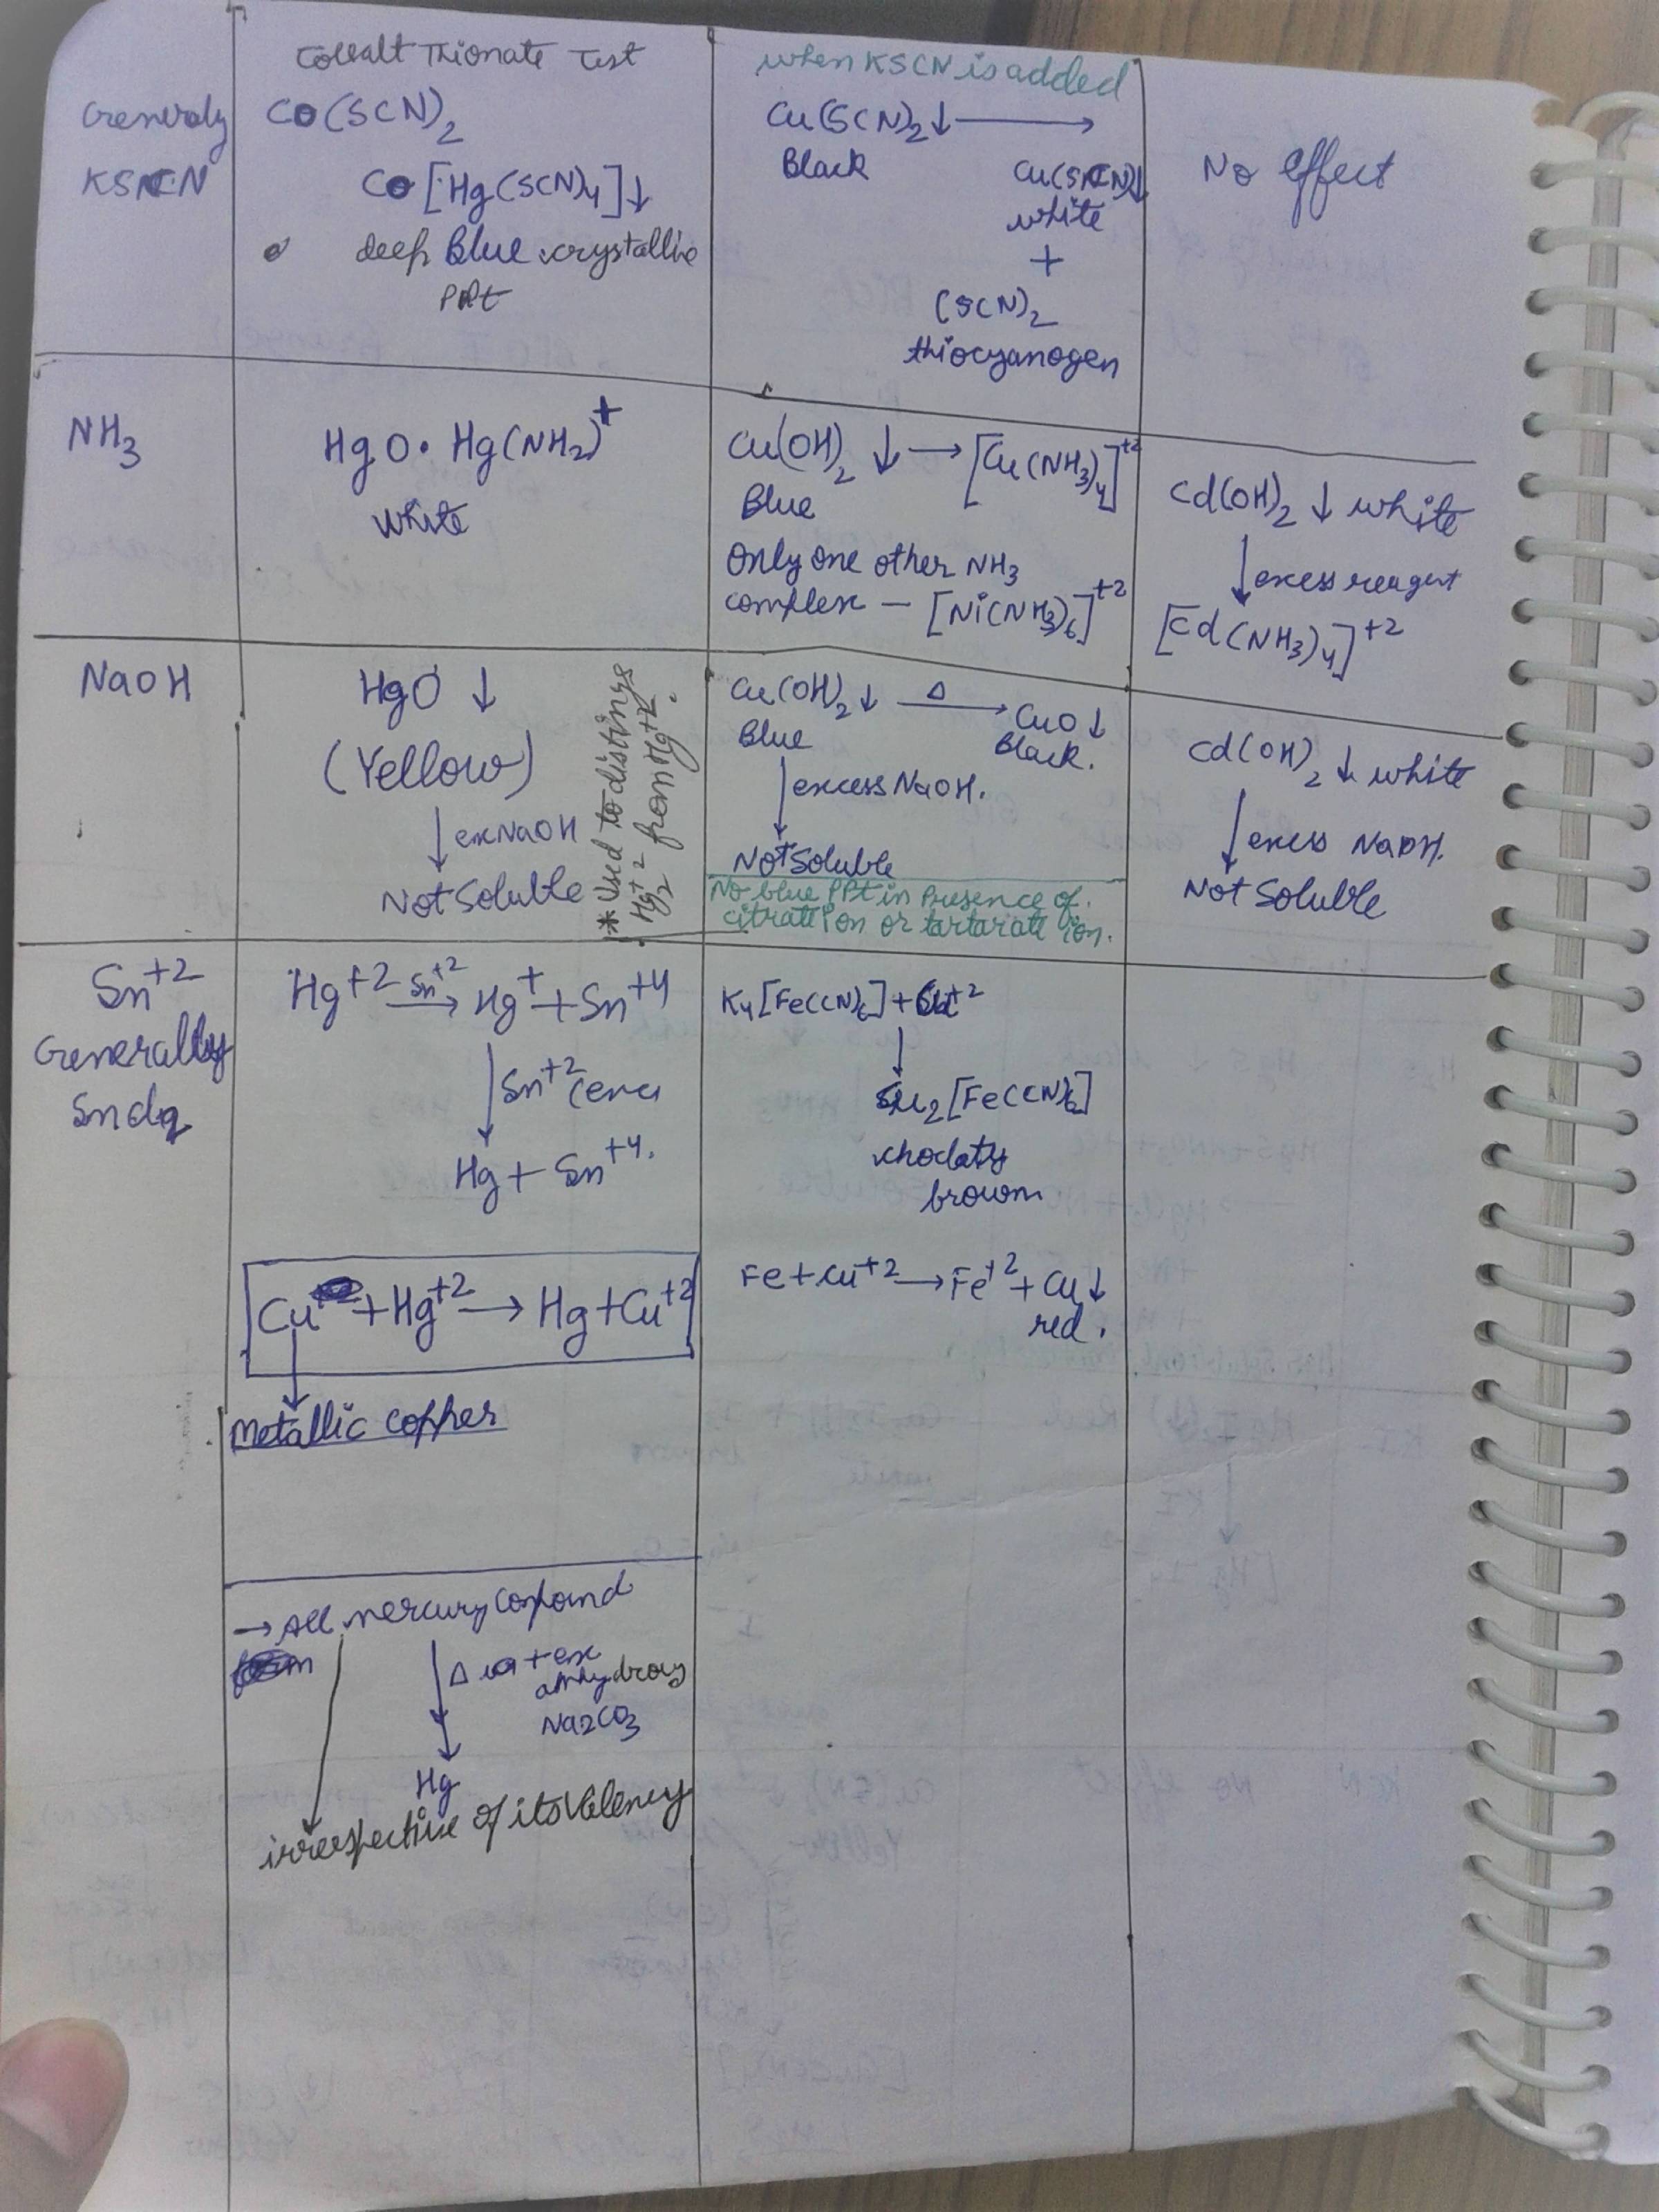 Cobalt Thionate Test
when KSCN is added
Generaly
KSCN
Co(SCN)2
Co[Hg(SCN)4]↓
deep Blue crystallie
PPt
Cu(SCN)2↓ →
Black
Cu(SCN)↓
white
+
(SCN)2
thiocyanogen
No effect
NH3
HgO • Hg(NH2)+
white
Cu(OH)2 ↓ → [Cu(NH3)4]+2
Blue
Only one other NH3
complex — [Ni(NH3)6]+2
Cd(OH)2 ↓ white
↓ excess reagent
[Cd(NH3)4]+2
NaOH
HgO ↓
(Yellow)
↓ exNaOH
Not Soluble
* Used to distings
Hg2+2 from Hg+2.
Cu(OH)2↓ Δ→ CuO↓
Blue
Black.
↓ excess NaOH.
Not Soluble
No blue PPt in Presence of
citrate ion or tartarate ion.
Cd(OH)2 ↓ white
↓ excess NaOH.
Not Soluble
Sn+2
Generally
Sncl2
Hg+2 Sn+2→ Hg+ + Sn+4
↓ Sn+2
Hg + Sn+4.
Cu + Hg+2 → Hg + Cu+2
↓
Metallic copper
K4[Fe(CN)6] + Cu+2
↓
Cu2[Fe(CN)6]
choclaty
brown
Fe + Cu+2 → Fe+2 + Cu↓
red.
→ All mercury Compound
Δ + ex
anhydrous
Na2CO3
Hg
irrespective of its Valency